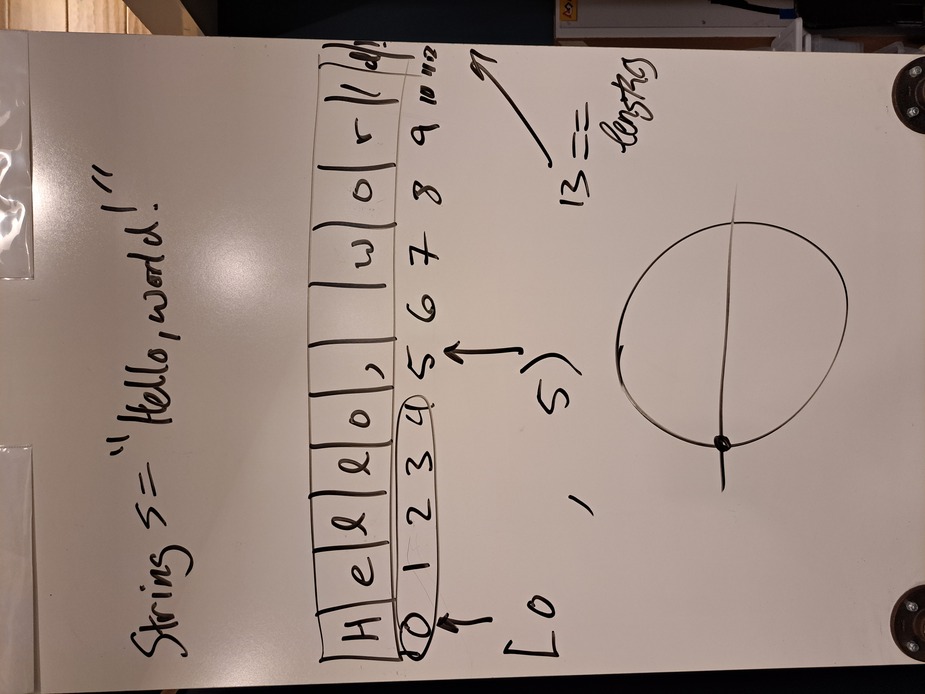 String s = "Hello, world!"
H e l l o ,   w o r l d !
0 1 2 3 4 5 6 7 8 9 10 11 12
[0 , 5)
13 ==
length()